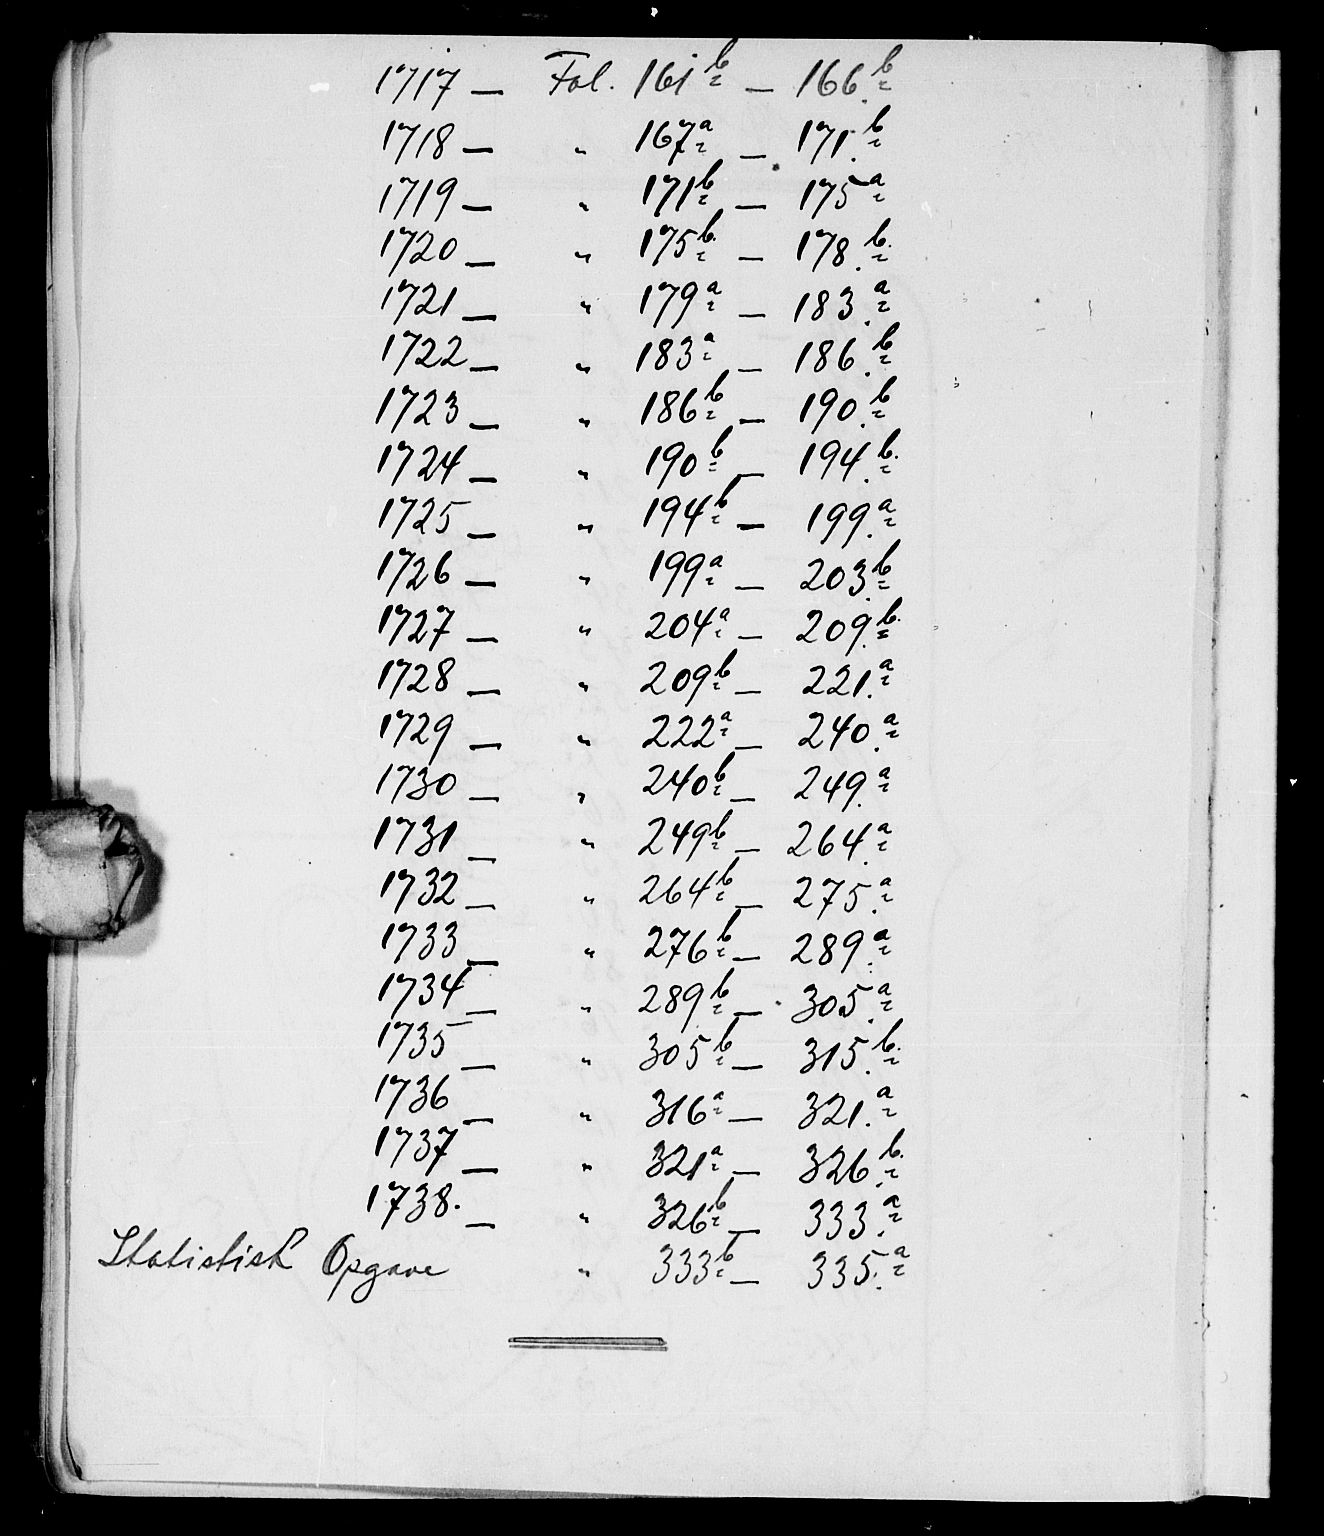 1717 — Fol. 161b — 166.b
1718 — " 167a — 171.b
1719 — " 171b — 175a
1720 — " 175b — 178.b
1721 — " 179a — 183.a
1722 — " 183a — 186.b
1723 — " 186b — 190.b
1724 — " 190b — 194.b
1725 — " 194b — 199.a
1726 — " 199a — 203.b
1727 — " 204a — 209.b
1728 — " 209b — 221.a
1729 — " 222a — 240.a
1730 — " 240b — 249.a
1731 — " 249b — 264.a
1732 — " 264b — 275.a
1733 — " 276b — 289.a
1734 — " 289b — 305.a
1735 — " 305b — 315.b
1736 — " 316a — 321.a
1737 — " 321a — 326.b
1738. — " 326b — 333.a
Statistisk Opgave " 333b — 335.a